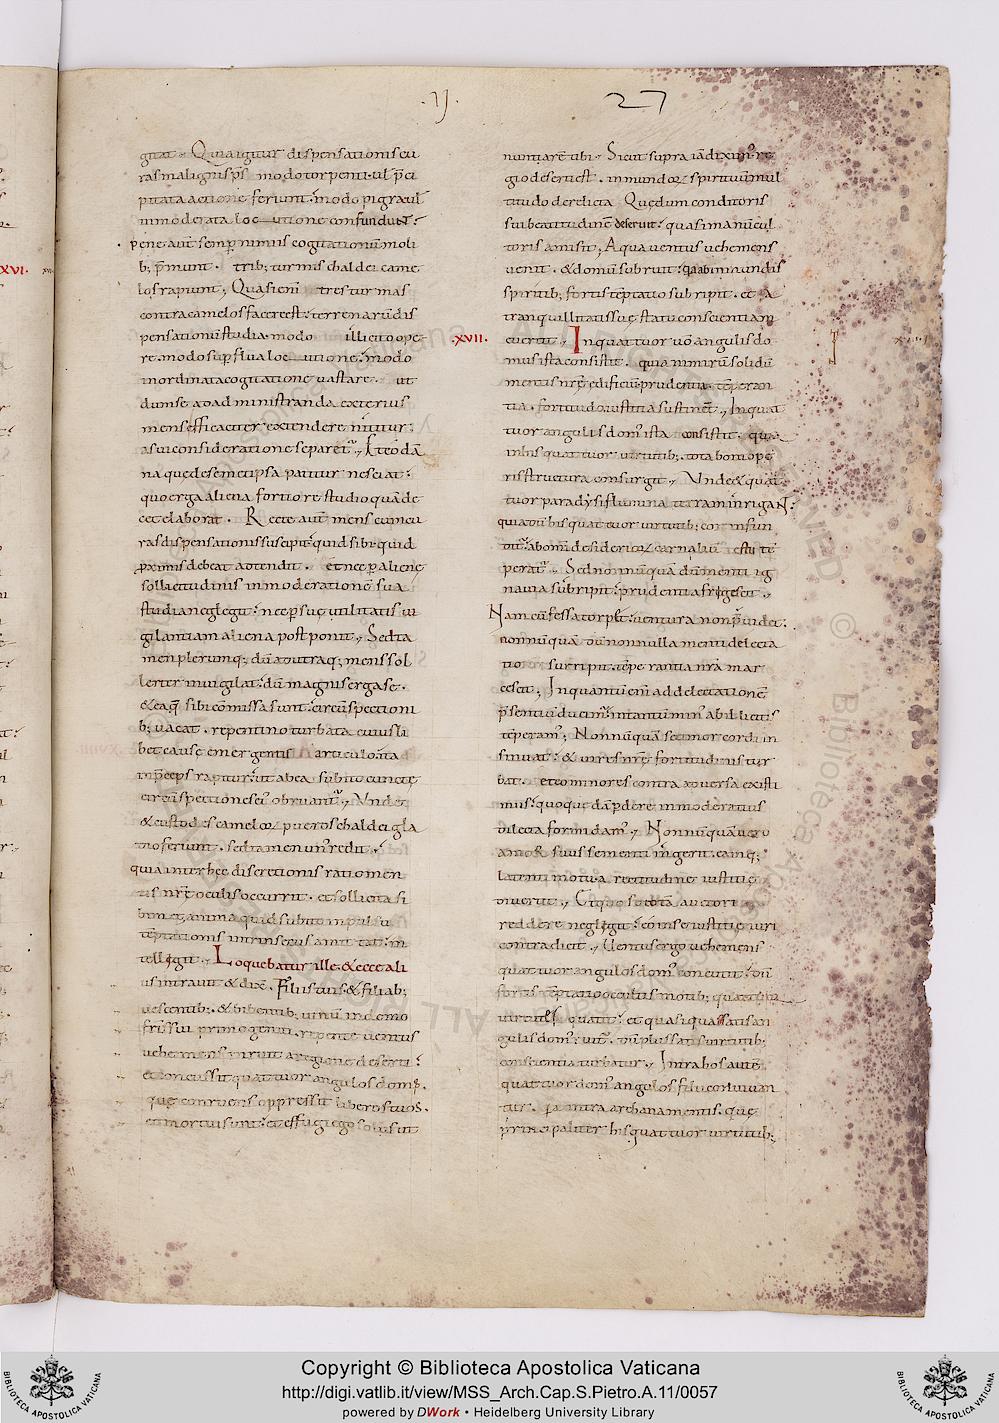 .IJ. 27
gitat. Quia igitur dispensationis cu
ras malignus sps modo torpenti. ul pci
pitata actione feriunt. modo pigra ul
inmoderata locutione confundunt:
pene aut semp nimiis cogitationu moli
b; pmunt. trib; turmis chaldei came
los rapiunt; Quasi eni tres turmas
contra camelos facere est: terrenaru dis
pensationu studia. modo illicito ope
re. modo supflua locutione: modo
inordinata cogitatione vastare. ut
dum se ad administranda exterius
mens efficaciter extendere nititur:
a sui consideratione separet., Et eo da
na que de semetipsa patitur nesciat:
quo erga aliena fortiore studio qua de
cet elaborat. Recte aut mens cum cu
ras dispensationis suscipit: quid sibi quid
proximis debeat adtendit. et nec p aliene
sollicitudinis inmoderatione sua
studia neglegit: nec p sue utilitatis vi
gilantiam aliena postponit., Sed ta
men plerumq; du ad utraq; mens sol
lerter invigilat: du magnis erga se.
& ea q sibi comissa sunt. circuspectioni
b; vacat. repentino turbata cuius li
bet cause emergentis articulo. ita
in preceps rapitur: ut ab ea subito cuncte
circuspectiones ei obruant., Unde
& custodes camelor pueros chaldei gla
dio feriunt. sed tamen un redit.,
quia inter hec discretionis ratio men
tis nre oculis occurrit. et sollicita si
bimet anima quid subito inpulsu
teptationis intrinsecus amittat: in
tellegit., Loquebatur ille. & ecce ali
us intravit & dix. Filiis tuis & filiab;
vescentib;. & bibentib; vinu in domo
fris sui primogeniti. repente ventus
vehemens inruit a regione deserti:
et concussit quattuor angulos domus.
que conruens oppressit liberos tuos.
et mortui sunt: et effugi ego solus ut
nuntiare tibi., Sicut supra ia diximus re
gio deserti est. inmundor spirituu mul
titudo derelicta Que dum conditoris
sui beatitudine deseruit: quasi manu cul
toris amisit; A qua ventus vehemens
venit. & domu subruit: quia ab inmundis
spiritib; fortis teptatio subripit. et a
tranquillitatis sue statu conscientiam
evertit., .XVII. In quattuor vo angulis do
mus ista consistit. quia nimiru solidu
mentis nre edificiu prudentia. teperan
tia. fortitudo. iustitia sustinet., In quat
tuor angulis domus ista consistit. quia
in his quattuor virtutib;. tota boni ope
ris structura consurgit., Unde & quat
tuor paradysi flumina terram inrigant:
quia du his quattuor virtutib; cor infun
ditur: ab omni desiderior carnaliu estu te
peratur., Sed nonnumqua du menti ig
navia subripit: prudentia frigescit.,
Nam cu fessa torpet: ventura non pvidet:
nonnumqua du nonnulla menti delecta
tio surripit. teperantia nra mar
cescit; In quantu eni ad delectatione
psentiu ducimur: in tantu minus ab illicitis
teperamur; Nonnumqua se timor cordi in
sinuat: & vires nre fortitudinis tur
bat. et eo minores contra adversa existi
mus: quo queda pdere inmoderatius
dilecta formidamus., Nonnumqua vero
amor suus se menti ingerit. eamq;
latenti motu a rectitudine iustitie
divertit., Et quo se totam auctori
reddere neglegit: eo in se iustitie iuri
contradicit., Ventus ergo vehemens
quattuor angulos domus concutit: du
fortis teptatio occultis motib; quattuor
virtutes quatit: et quasi quassatis an
gulis domus eruitur. du pulsatis virtutib;
conscientia turbatur., Intra hos aute
quattuor domus angulos. filii convivan
tur. quia intra archana mentis. que
principaliter his quattuor virtutib;
XVI.
Copyright © Biblioteca Apostolica Vaticana
http://digi.vatlib.it/view/MSS_Arch.Cap.S.Pietro.A.11/0057
powered by DWork • Heidelberg University Library
BIBLIOTECA APOSTOLICA VATICANA
BIBLIOTECA APOSTOLICA VATICANA